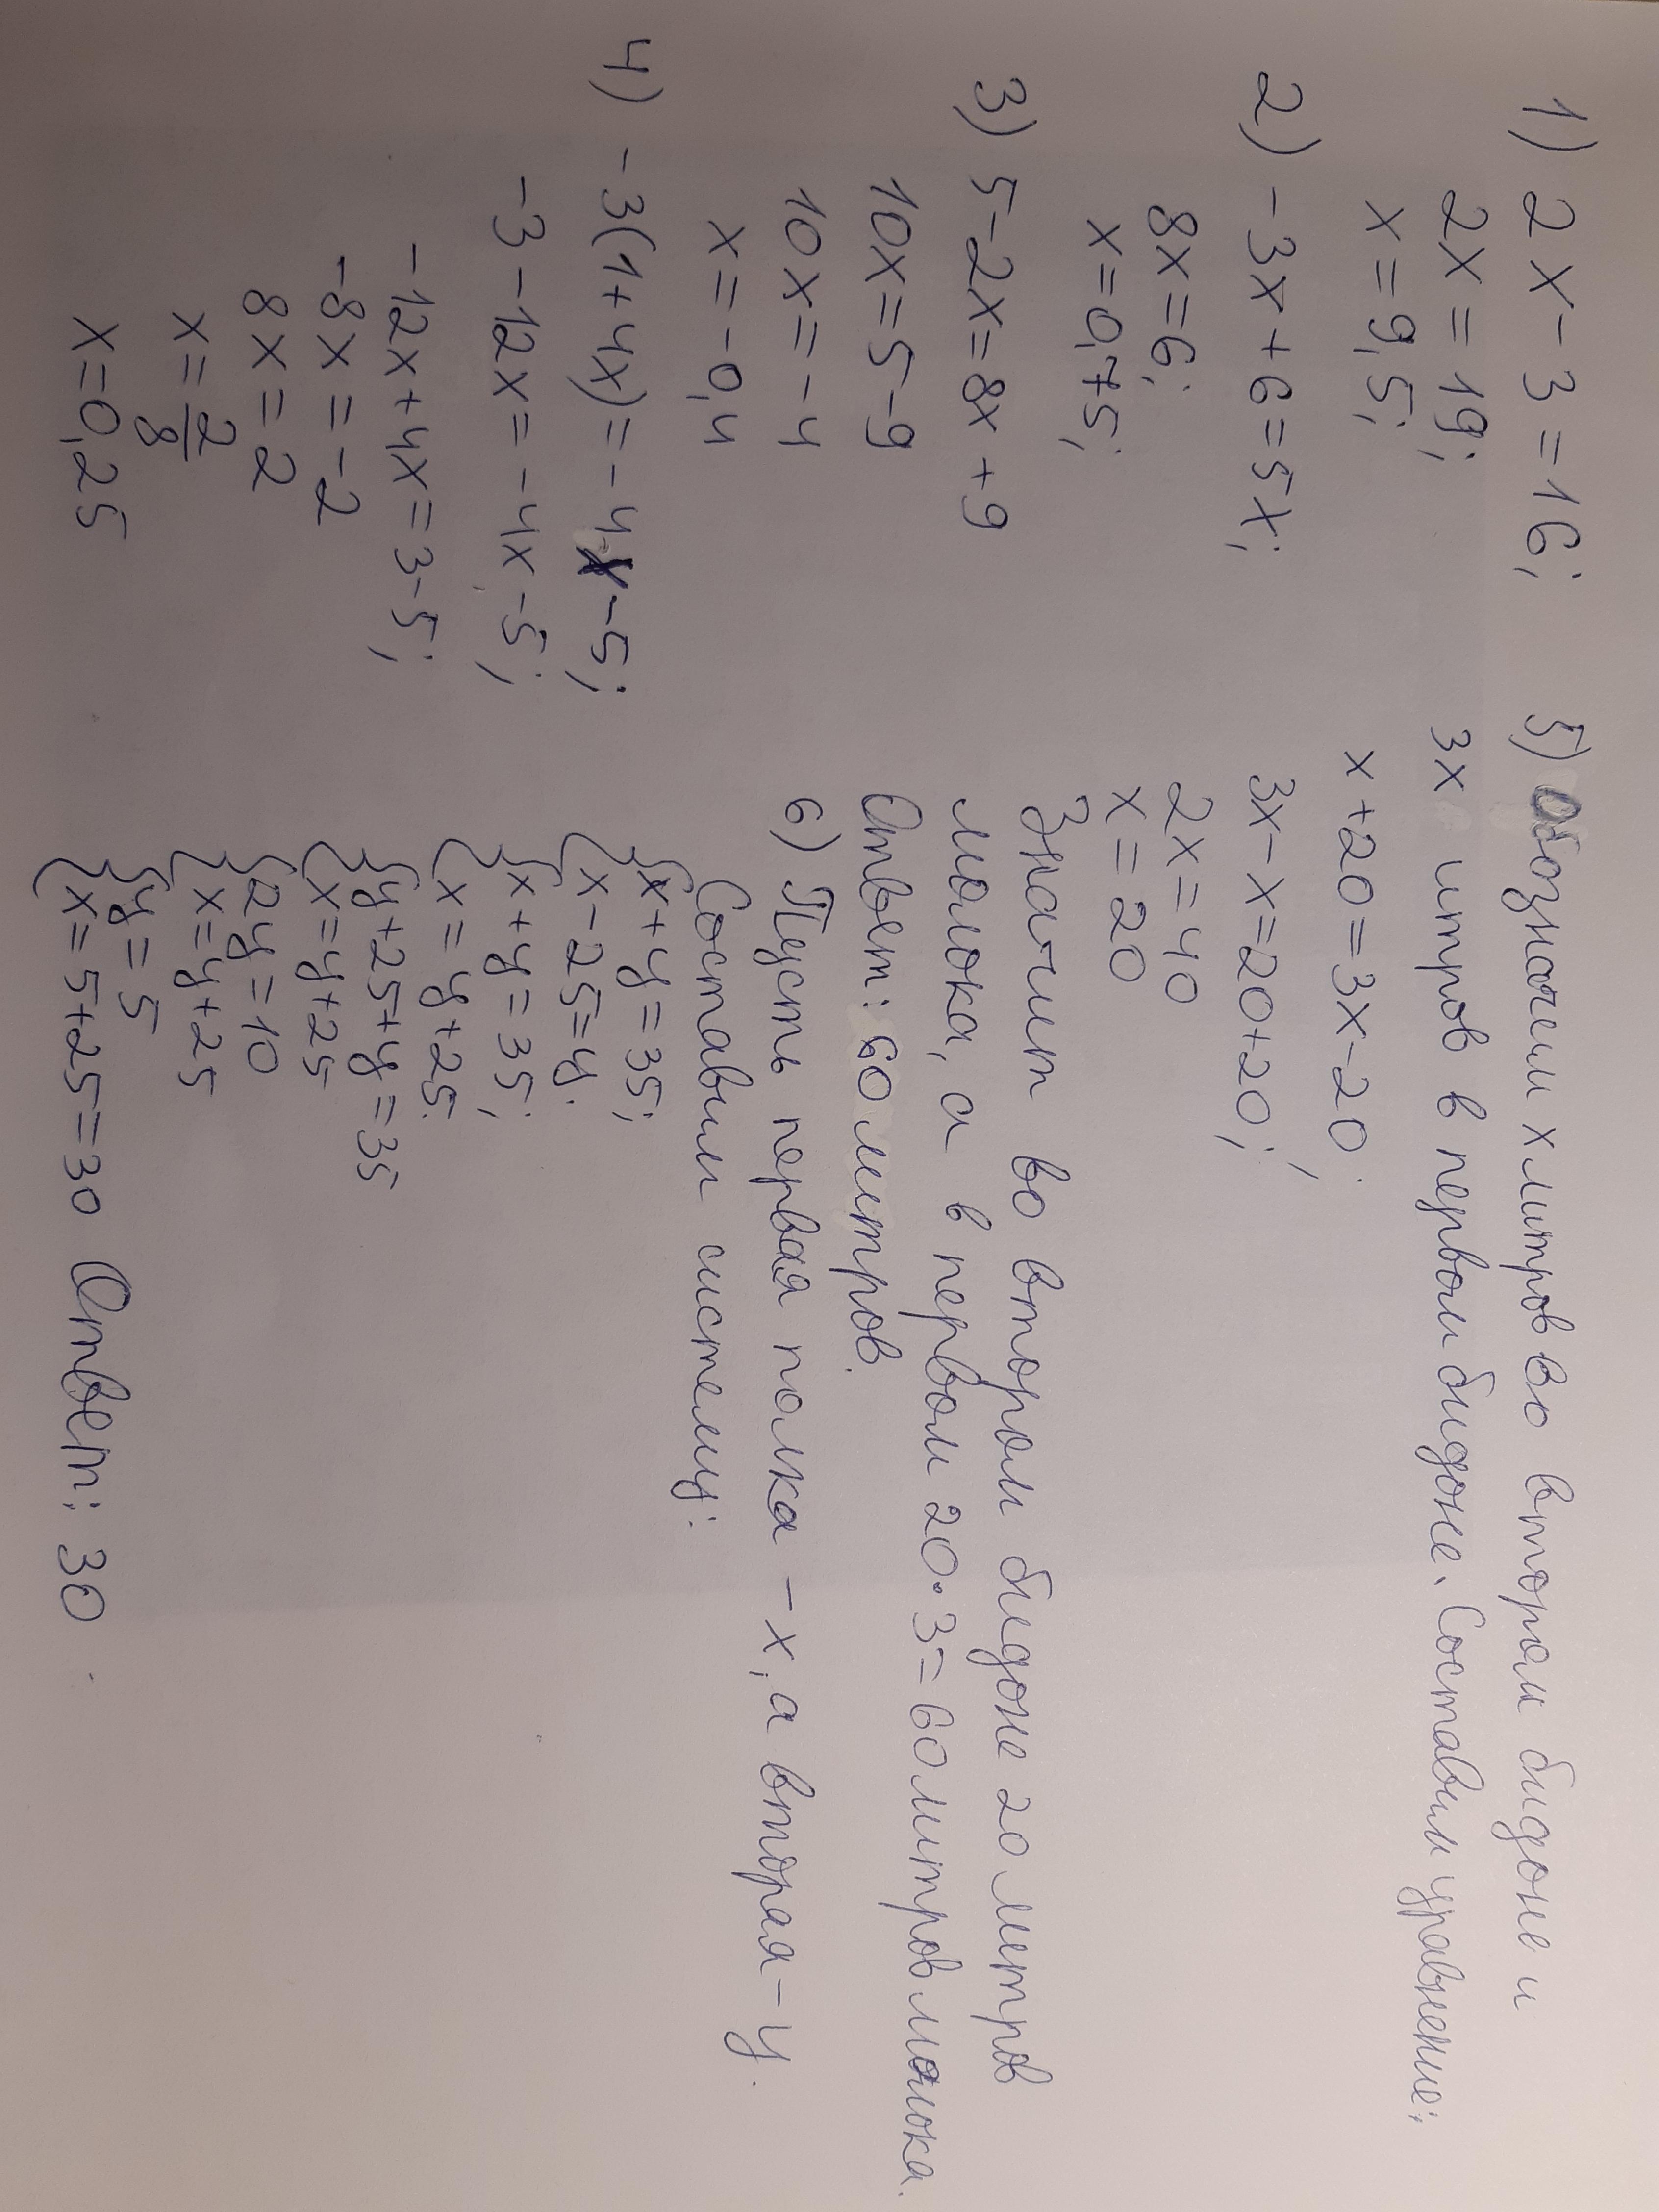 1) 2x-3=16;
2x=19;
x=9,5;
2) -3x+6=5x;
8x=6;
x=0,75;
3) 5-2x=8x+9
10x=5-9
10x=-4
x=-0,4
4) -3(1+4x)=-4x-5;
-3-12x=-4x-5;
-12x+4x=3-5;
-8x=-2
8x=2
x=2/8
x=0,25
5) Обозначим x литров во втором бидоне и
3x литров в первом бидоне. Составим уравнение:
x+20=3x-20;
3x-x=20+20;
2x=40
x=20
Значит во втором бидоне 20 литров
молока, а в первом 20·3=60 литров молока.
Ответ: 60 литров.
6) Пусть первая полка - x, а вторая - y.
Составим систему:
{x+y=35;
{x-25=y.
{x+y=35;
{x=y+25.
{y+25+y=35
{x=y+25
{2y=10
{x=y+25
{y=5
{x=5+25=30 Ответ: 30